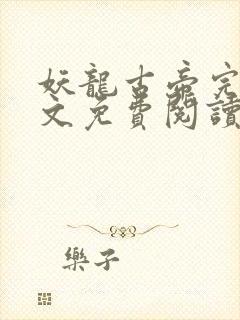 妖龍古帝完
文免費閱讀
樂子